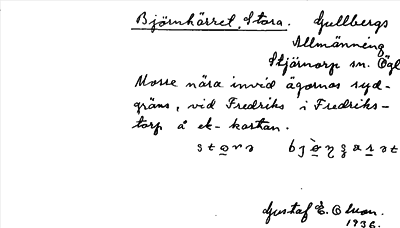 Björnkärret, Stora. Gullbergs
Allmänning
Stjärnorp sn. Ögl
Mosse nära invid ägornas syd-
gräns, vid Fredriks i Fredriks-
torp å ek-kartan.
Gustaf E. Olson.
1936.